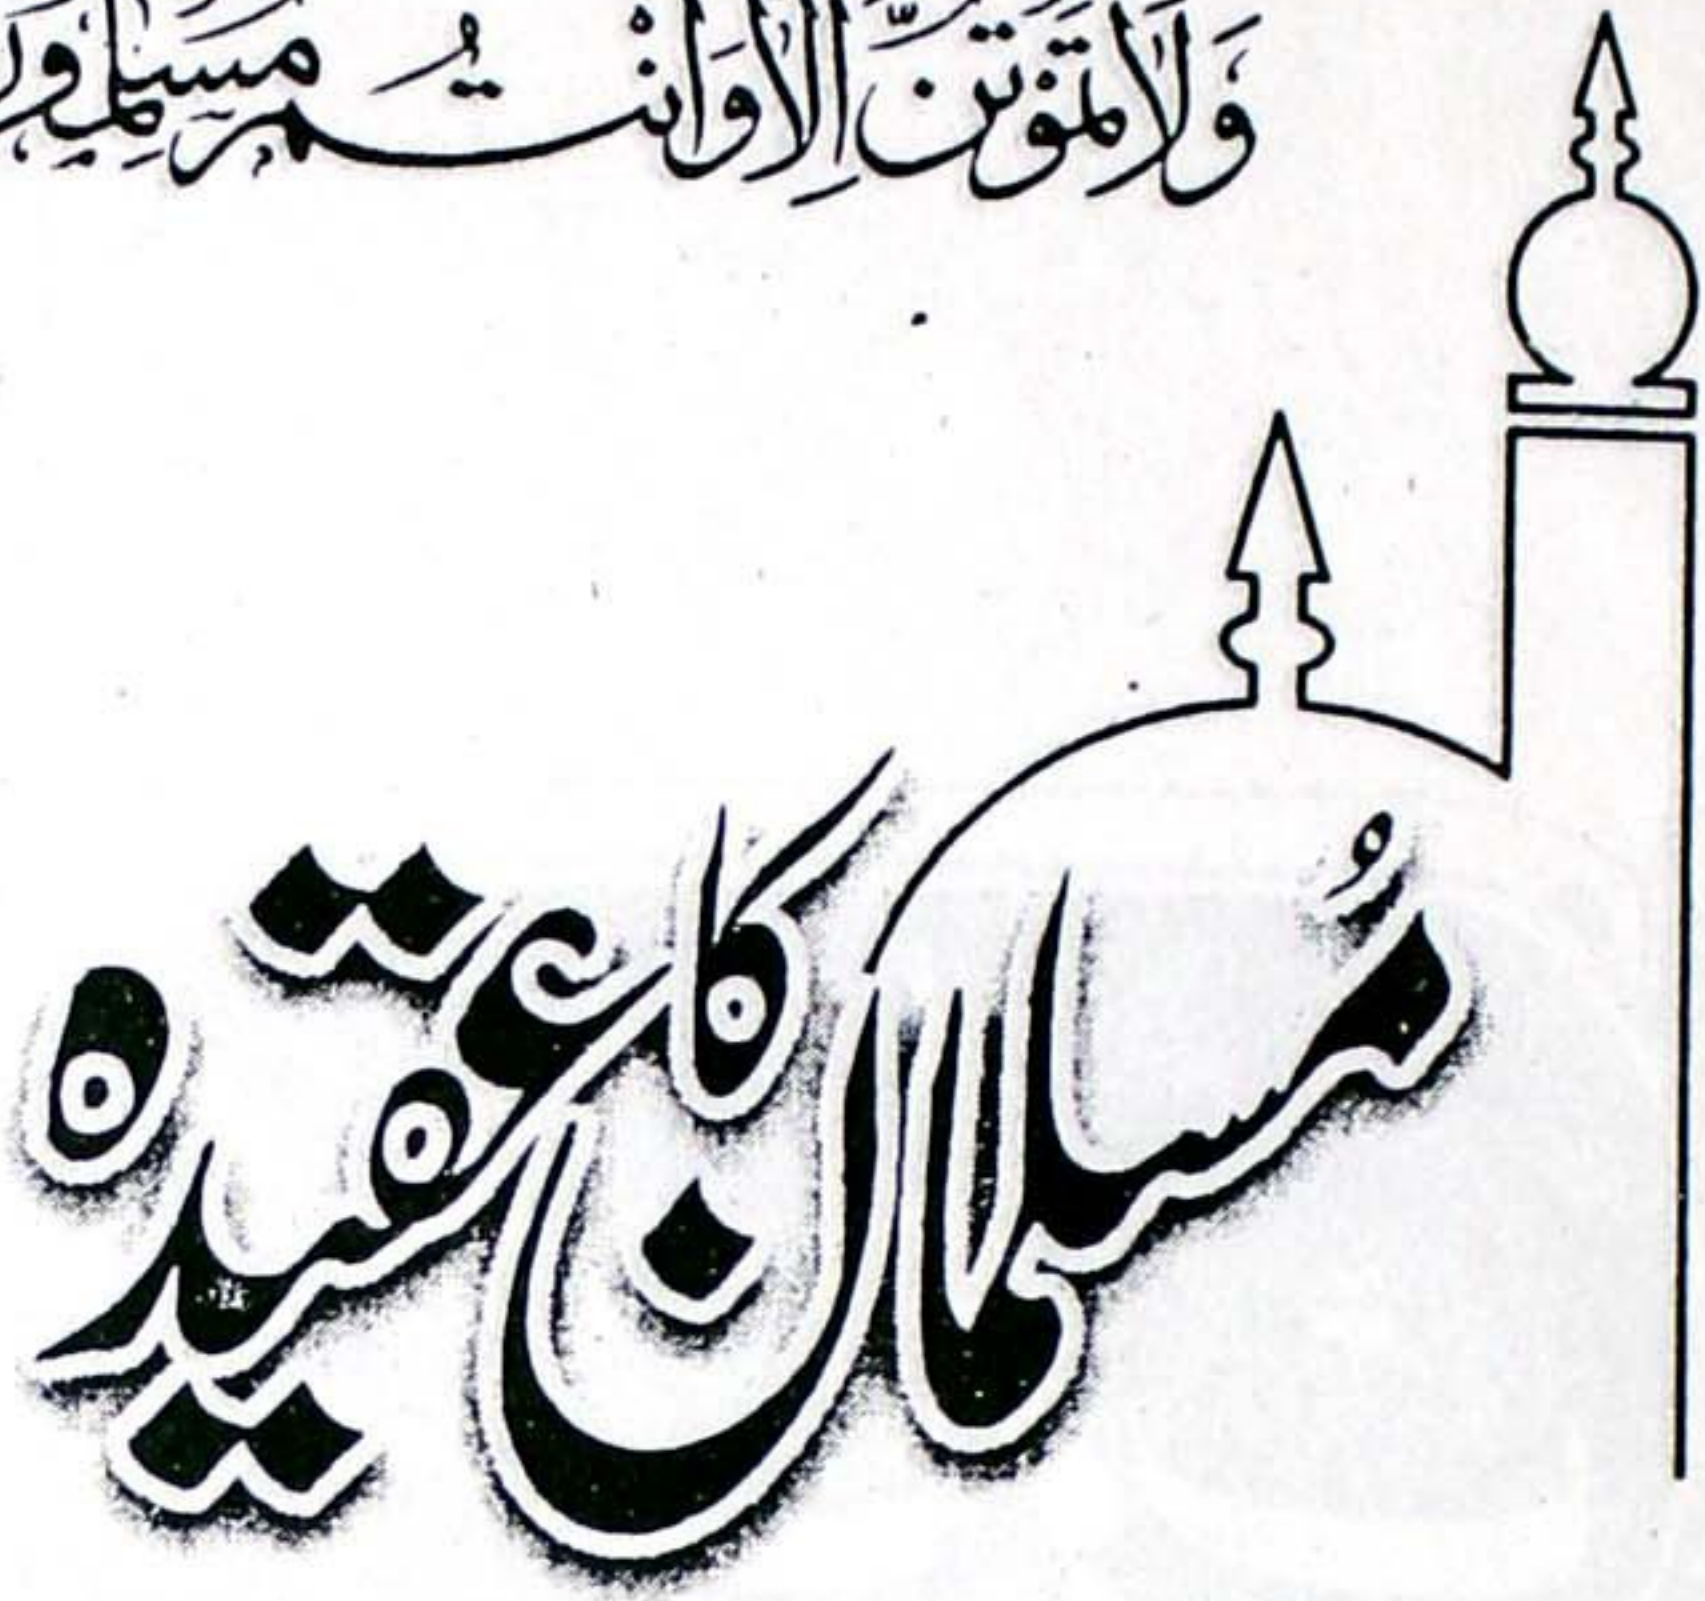 وَلَا تَمُوْتُنَّ اِلَّا وَاَنْتُمْ مُسْلِمُوْنَ
مُسلمان کا عقیدہ